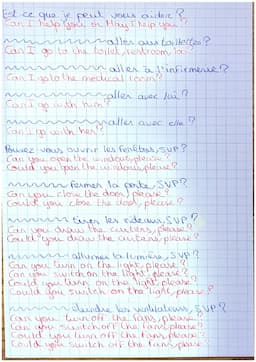 Est ce que je peut vous aider ?
Can I help you or May I help you ?
aller aux toilettes ?
Can I go to the toilet, restroom, loo
aller à l'infirmerie ?
Can I go to the medical room ?
aller avec lui ?
Can I go with him ?
aller avec elle ?
Can I go with her ?
Pouvez vous ouvrir les fenêtres, SVP ?
Can you open the windows, please ?
Could you open the windows, please ?
fermer la porte, SVP ?
Can you close the door, please ?
Could you close the door, please ?
tirer les rideaux, SVP ?
Can you draw the curtains, please ?
Could you draw the curtains, please ?
allumer la lumière, SVP ?
Can you turn on the light, please ?
Can you switch on the light, please ?
Could you turn on the light, please ?
Could you switch on the light, please ?
éteindre les ventilateurs, SVP ?
Can you turn off the fans, please ?
Can you switch off the fans, please ?
Could you turn off the fans, please ?
Could you switch off the fans, please